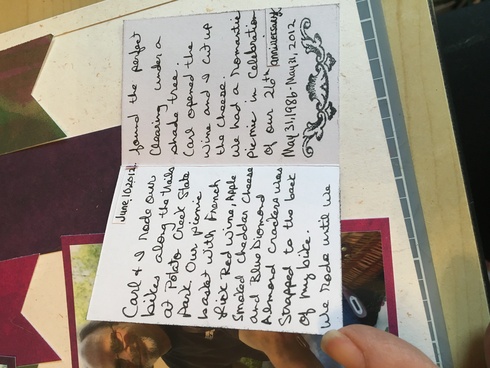 June 10 2012
Carl & I rode our
bikes along the trails
at Potato Creek State
Park. Our picnic
basket with French
Rick Red Wine, Apple
Smoked Cheddar Cheese
and Blue Diamond
Almond Crackers was
strapped to the back
of my bike.
We rode until we
found the perfect
clearing under a
shade tree.
Carl opened the
wine and I cut up
the cheese.
We had a romantic
picnic in celebration
of our 26th anniversary
May 31, 1986 - May 31, 2012